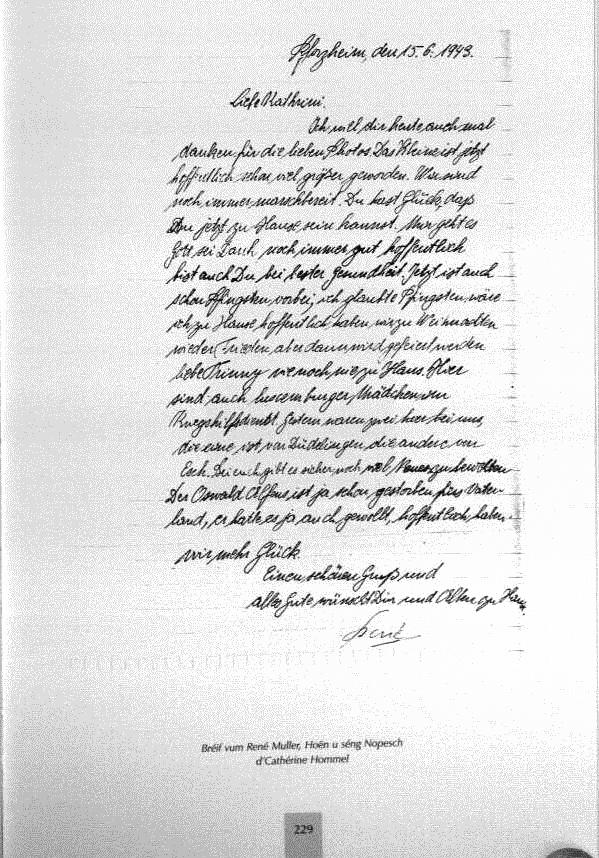 Pforzheim, den 15.6.1943.
Liebe Kathrini.
Ich will dir heute auch mal
danken für die lieben Photos Das Kleine ist jetzt
hoffentlich schon viel größer geworden. Wir sind
noch immer marschbereit. Du hast Glück, daß
Du jetzt zu Hause sein kannst. Mir geht es
Gott sei Dank noch immer gut hoffentlich
bist auch Du bei bester Gesundheit. Jetzt ist auch
schon Pfingsten vorbei, ich glaubte Pfingsten wäre
ich zu Hause hoffentlich haben wir zu Weihnachten
wieder Frieden, aber dann wird gefeiert werden
liebe Trinny wie noch nie zu Haus. Hier
sind auch luxemburger Mädchen vom
Kriegshilfsdienst. Gestern waren zwei hier bei uns,
die eine ist von Düdelingen die andere von
Esch. Bei euch gibt es sicher noch viel Neues zu
Der Oswald Alfons ist ja schon gestorben fürs Vater-
land, er hatte es ja auch gewollt, hoffentlich haben
wir mehr Glück.
Einen schönen Gruß und
alles Gute wünscht Dir und Allen zu Haus.
René
Bréif vum René Muller, Hoën u séng Nopesch
d'Cathérine Hommel
229